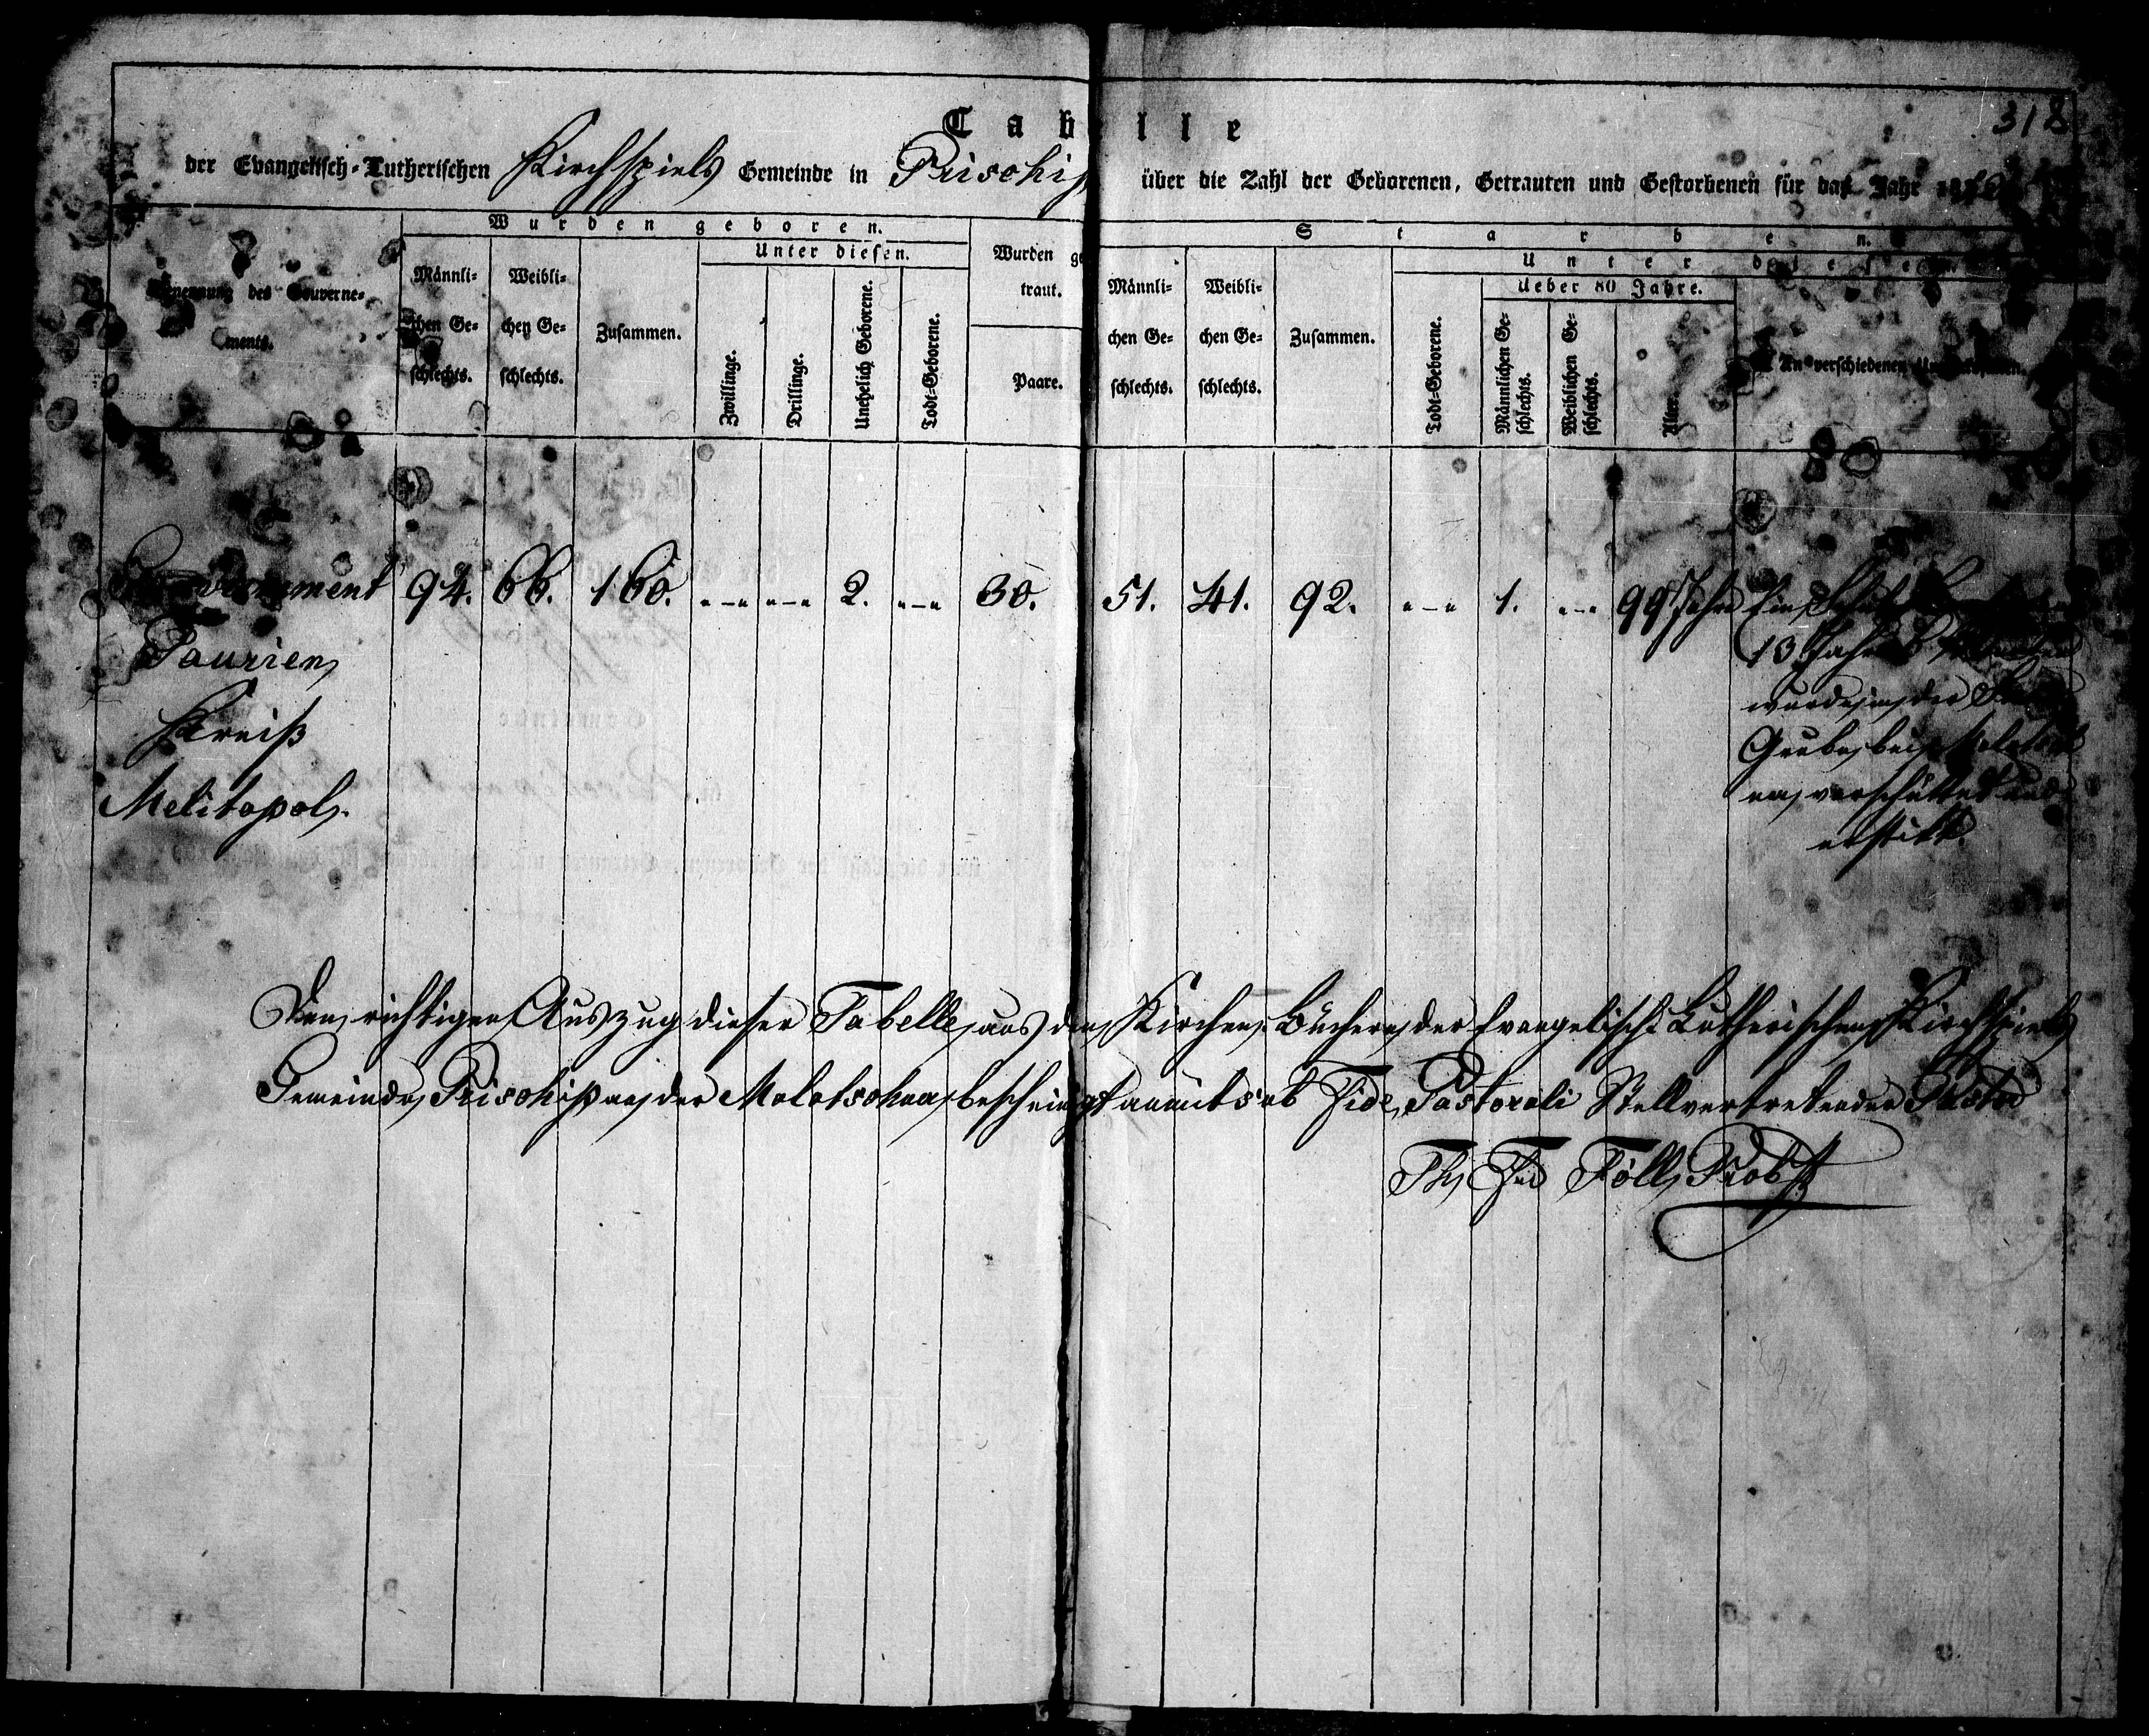 318
Tabelle
der Evangelisch-Lutherischen Kirchspiels Gemeinde in Prischip über die Zahl der Geborenen, Getrauten und Gestorbenen für das Jahr
Benennung des Gouverne-
ments.
Wurden geboren.
Männli-
chen Ge-
schlechts.
Weibli-
chen Ge-
schlechts.
Zusammen.
Unter diesen.
Zwillinge.
Drillinge.
Unehelich Geborene.
Todt-Geborene.
Wurden ge
traut.
Paare.
Starben.
Männli-
chen Ge-
schlechts.
Weibli-
chen Ge-
schlechts.
Zusammen.
Unter diesen.
Todt-Geborene.
Ueber 80 Jahre.
Männlichen Ge-
schlechts.
Weiblichen Ge-
schlechts.
Alter.
An verschiedenen
Gouvernement 94. 66. 160. „–„ „–„ 2. „–„ 30. 51. 41. 92. „–„ 1. „–„ 99 Jahre Ein
Taurien 13 Jahre
Kreiß wurde in der
Melitopol. Grube bei
verschüttet und
erstikt.
Den richtigen Auszug dieser Tabelle aus den Kirchen-Büchern der Evangelisch-Lutherischen Kirchspiels
Gemeinde Prischip an der Molotschna bescheinigt amit sub Fide Pastorali Stellvertretender Pastor
Föll Probst